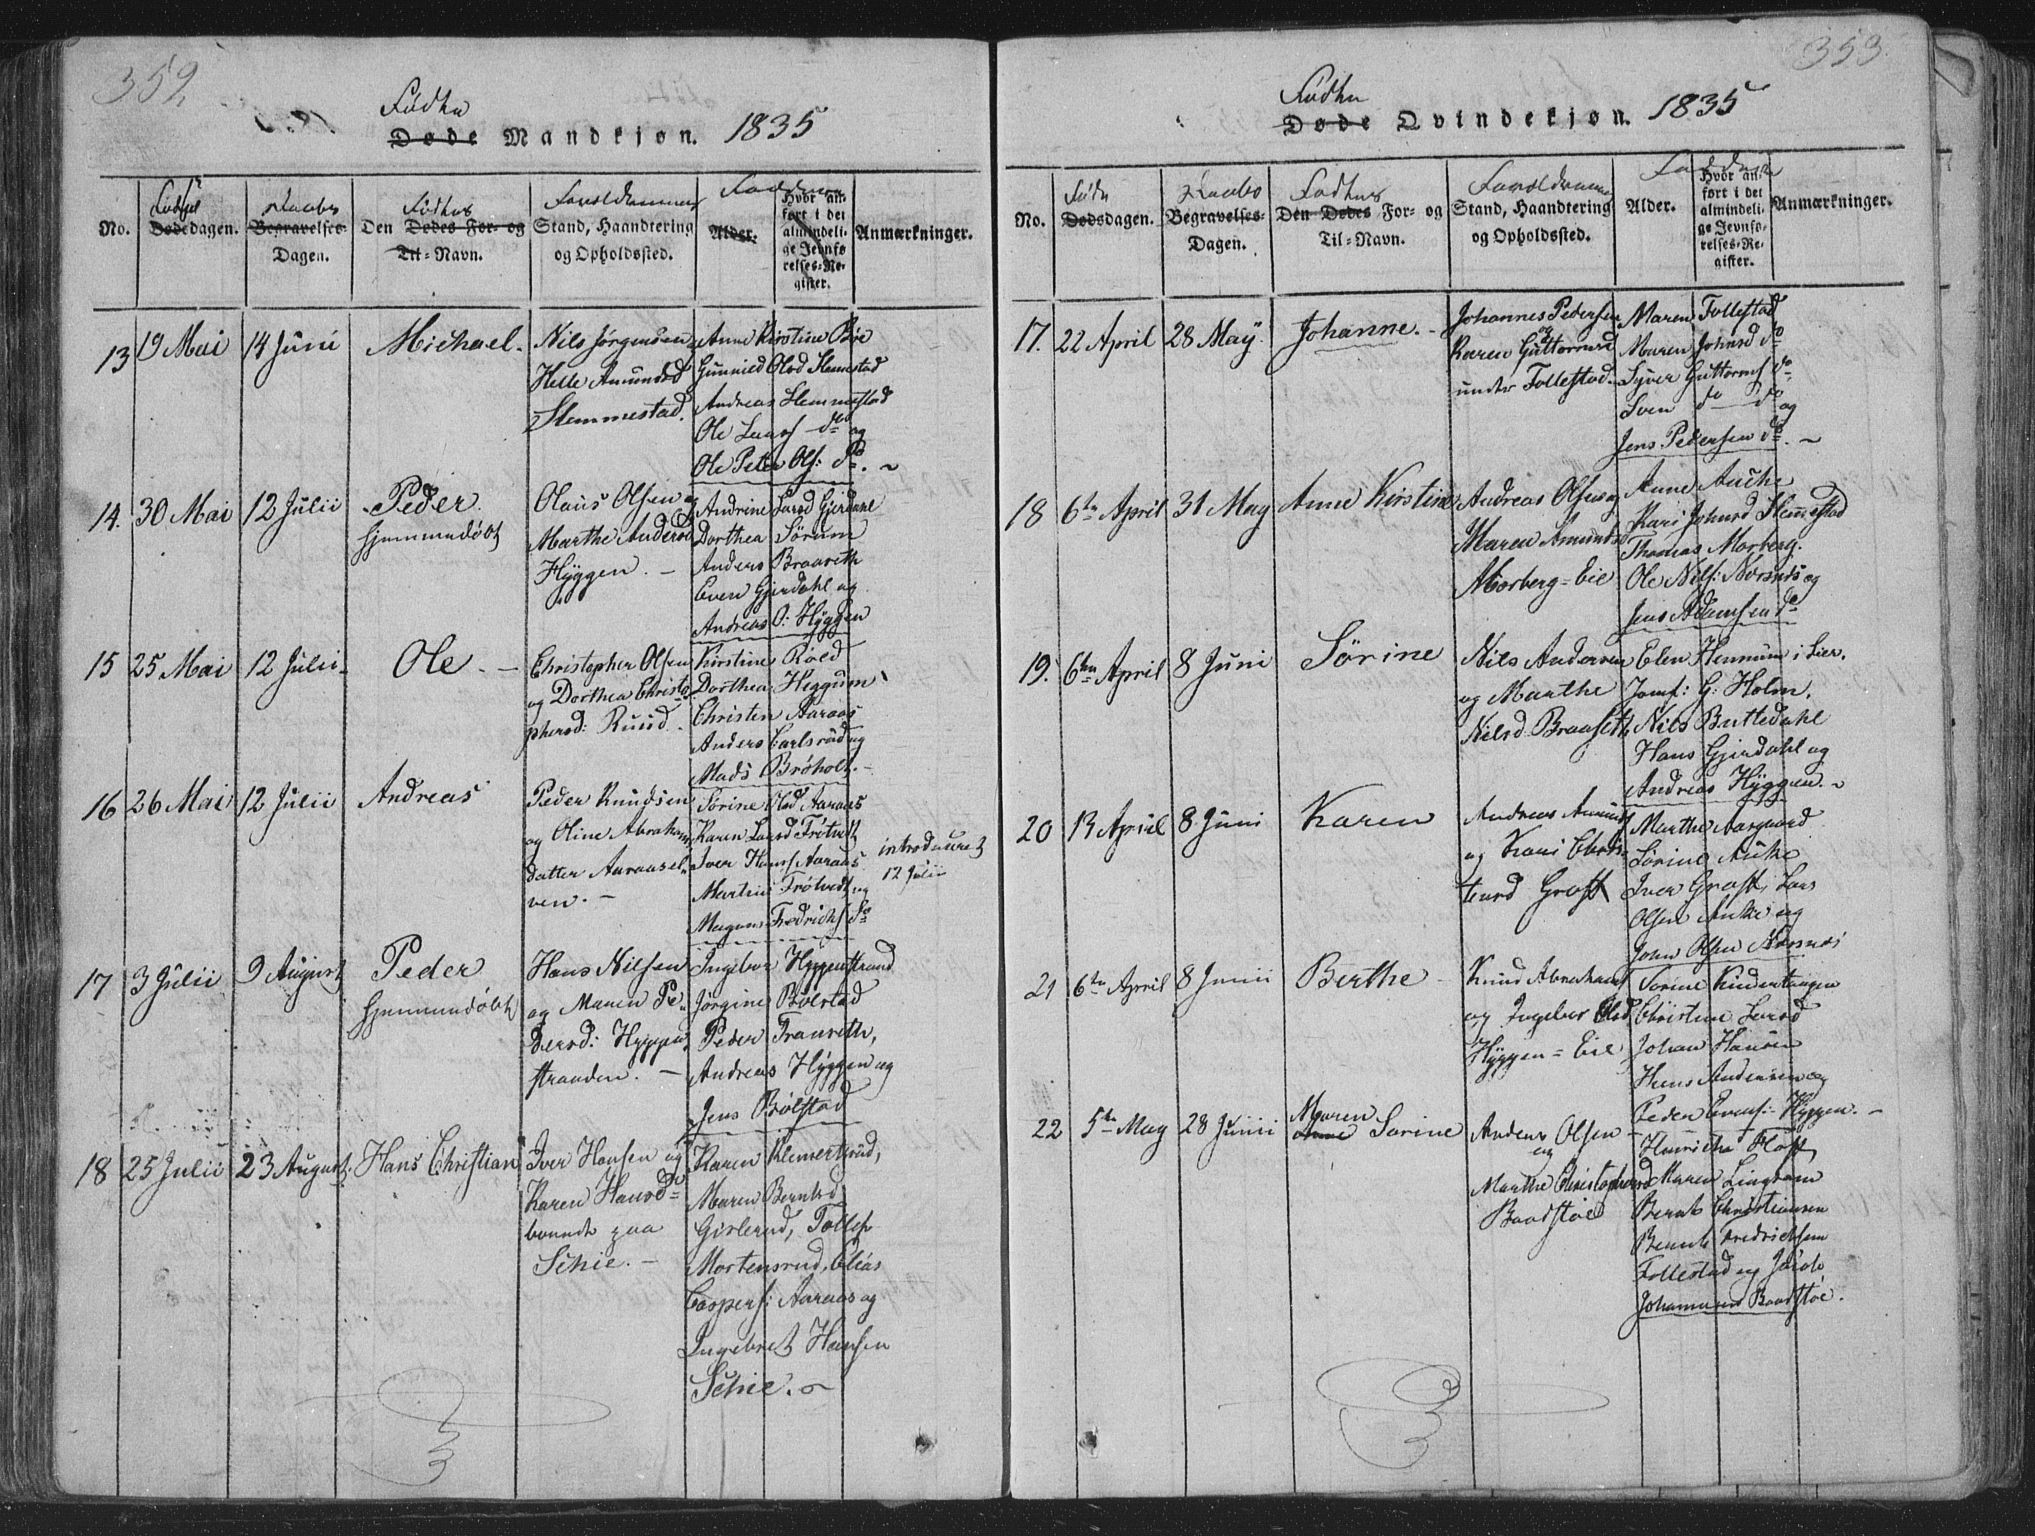 352
Födte
Døde Mandkjøn. 1835
No.
Födsels
Dødsdagen.
Daabs
Begravelses-
Dagen.
Födtes
Den Dødes For- og
Til-Navn.
Forældrenes
Stand, Haandtering
og Opholdssted.
Faddere
Alder.
Hvor an-
ført i det
almindeli-
ge Jevnfø-
relses-Re-
gister.
Anmærkninger.
13
19 Mai
14 Juni
Michael.
Nils Jörgensen
Helle Amundsd
Slemmestad.
Anne Kirstine Böe
Gunnild Olsd Slemestad
Andreas Slemmestad
Ole Larss do og
Ole Peter Ols: do. ~
14.
30 Mai
12 Julii
Peder.
hjemmedöbt
Olaus Olsen og
Marthe Andersd
Hÿggen. —
Andrine Larsd Gjerdahl
Dorthea Sörum
Anders Braaseth
Even Gjerdahl og
Andreas O: Hÿggen
15
25 Mai
12 Julii
Ole. —
Christopher Olsen
og Dorthea Christo-
phersd: Ruud.
Kirstine Röed
Dorthea Heggum
Christen Aaraas
Anders Carlsröd og
Mads Bröholt. —
16
26 Mai
12 Julii
Andreas
Peder Knudsen
og Oline Abrahams
datter Aaraasel-
ven. —
Sörine Olsd Aaraas
Karen Larsd Frötvedt
Iver Hanss Aaraas
Martin Frötvedt og
Magnus Fredrichs do
introduceret
12 Julii
17
3 Julii
9 August
Peder
hjemmedöbt
Hans Nilsen
og Maren Pe-
dersd: Hyggen
stranden. —
Ingebor Hyggenstrand
Jørgine Bölstad
Peder Tranreth,
Andreas Hÿggen og
Jens Bölstad
18
25 Julii
23 August
Hans Christian
Iver Hansen og
Karen Hansd
boende paa
Schie. —
Karen Klemertsrud,
Maren Berntsd
Girlerud, Tollef
Mortensrud, Elias
Caspers: Aaraas og
Ingebret Hansen
Schie. ~
353
Födte
Døde Qvindekjøn. 1835
No.
Föds
Dødsdagen.
Daabs
Begravelses-
Dagen.
Födtes
Den Dødes For- og
Til-Navn.
Forældrenes
Stand, Haandtering
og Opholdssted.
Faddere
Alder.
Hvor an-
ført i det
almindeli-
ge Jevnfø-
relses-Re-
gister.
Anmærkninger.
17.
22 April
28 Maÿ.
Johanne. -
Johannes Pedersen
og
Karen Guttormsd
under Tollestad.
Maren Follestad
Maren Johnsd do
Syver Guttorms do
Sven do — do og
Jens Pedersen do. ~
18
6te April
31 May
Anne Kirstine
Andreas Olsen og
Maren Amundsd
Morberg=Eie
Anne Auke
Kari Johnsd Hemestad
Thomas Morberg.
Ole Nils: Nærsnes og
Jens Adamsen do
19.
6te April
8 Juni
Sörine
Nils Andersen
og Marthe
Nilsd Braaseth
Elen Hennum i Lier.
Jomf: G: Holm.
Nils Buttedahl
Hans Gjerdahl og
Andreas Hÿggen. ~
20
13 April
8 Juni
Karen
Andreas Amunds
og Kari Chris-
tensd Groft
Marthe Aasgaard
Sörine Auke
Iver Groft, Lars
Olsen Auke og
John Olsen Nærsnæs
21
6te April
8 Junii
Berthe
Knud Abrahams
og Ingebor Olsd
Hÿggen=Eie
Sorine Kindertangen
Christine Larsd
Johan Hansen
Hans Andersen og
Peder Evens: Hÿggen. —
22
5te May
28 Junii
Maren
Anne Sorine
Anders Olsen
og
Marthe Christophersd
Baadstöe
Henriche Floft,
Maren Lingsom
Bernt Christiansen
Bernt Fredrichsen
Follestad og Jacob
Johannesen Baadstöe.